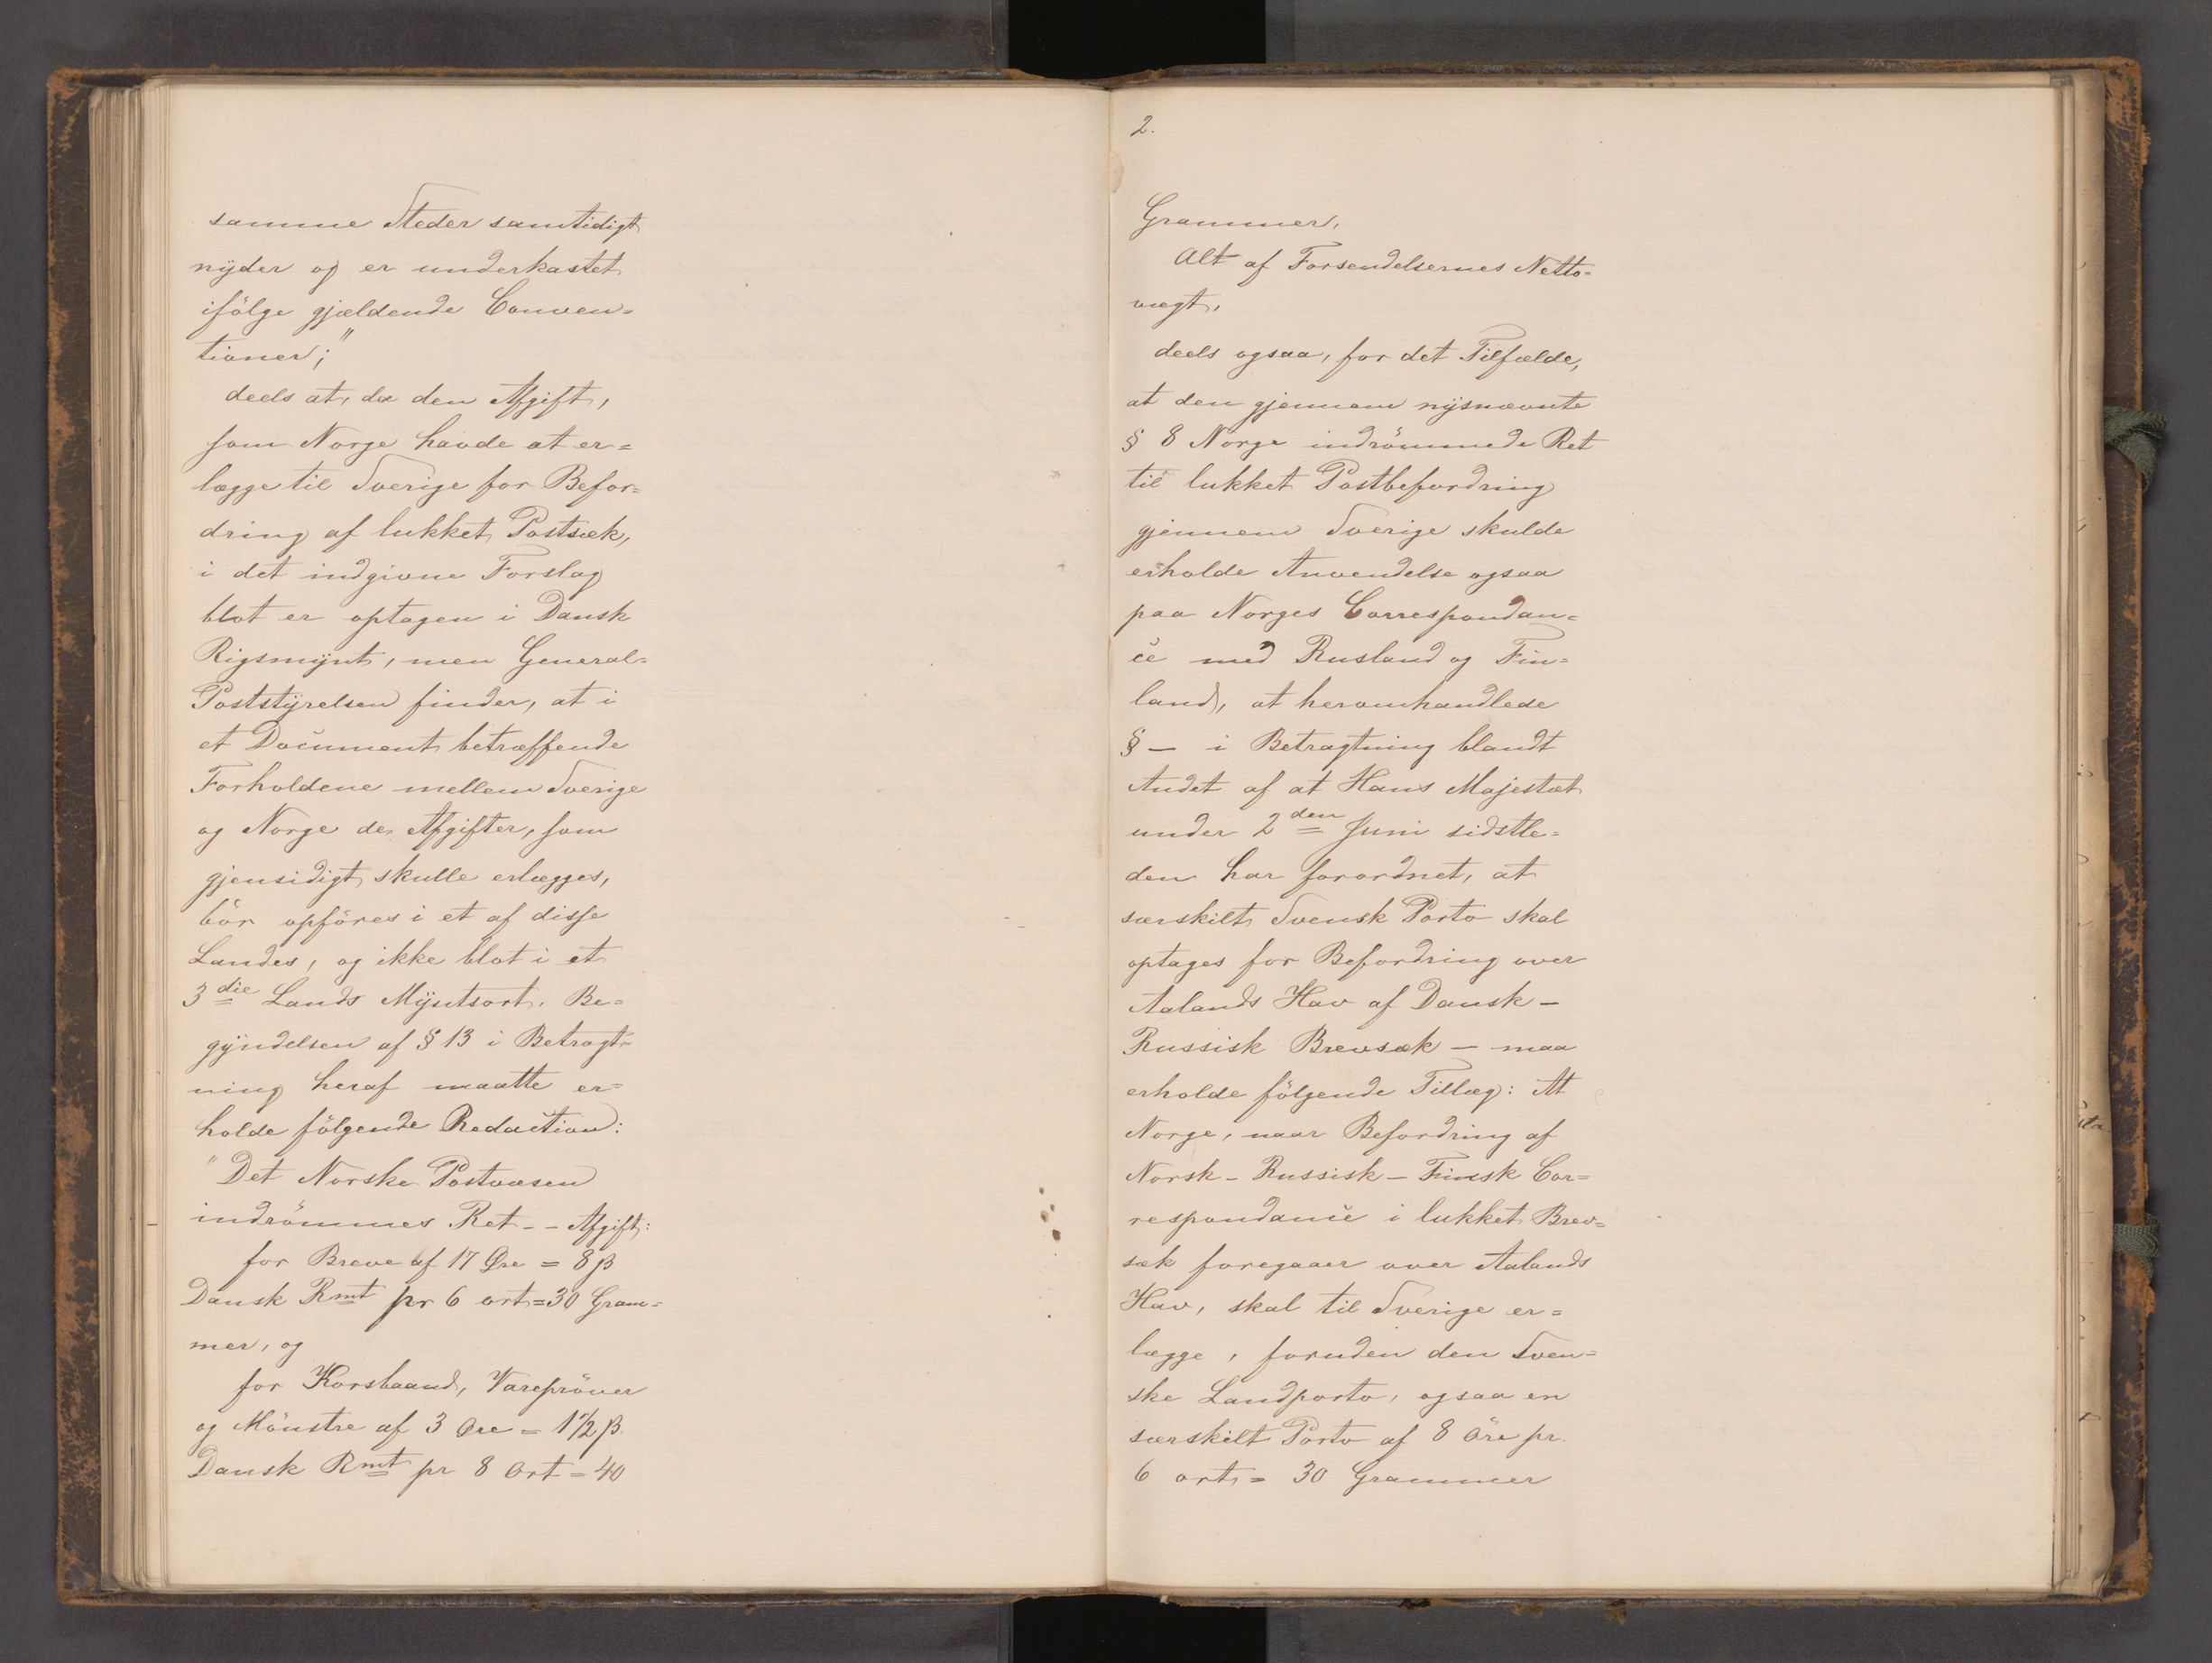 samme Steder samtidigt
nÿder og er underkastet
ifölge gjældende Conven=
tioner;"
deels at, da den Afgift,
som Norge havde at er=
lægge til Sverige for Befor=
dring af lukket Postsæk,
i det indgivne Forslag
blot er optagen i Dansk
Rigsmÿnt, men General=
Poststÿrelsen finder, at i
et Document betræffende
Forholdene mellem Sverige
og Norge de Afgifter, som
gjensidigt skulle erlægges,
bör opföres i et af disse
Landes, og ikke blot i et
3die Lands Mÿntsort, Be=
gÿndelsen af § 13 i Betragt=
ning heraf maatte er=
holde fölgende Redaction:
"Det Norske Postvæsen
indrömmes Ret - - Afgift:
for Breve af 17 Øre = 8 β
Dansk Rmt pr 6 ort = 30 Gram=
mer, og
for Korsbaand, Varepröver
og Mönstre af 3 Øre = 1 1/2 β.
Dansk Rmt pr 8 Ort = 40
2.
Grammer,
Alt af Forsendelsernes Netto=
vægt,
deels ogsaa, for det Tilfælde,
at den gjennem nÿsnævnte
§ 8 Norge indrömmede Ret
til lukket Postbefordring
gjennem Sverige skulde
erholde Anvendelse ogsaa
paa Norges Correspondan=
ce med Rusland og Fin=
land, at heromhandlede
§ — i Betragtning blandt
Andet af at Hans Majestæt
under 2den Juni sidstle=
den har forordnet, at
særskilt Svensk Porto skal
optages for Befordring over
Aalands Hav af Dansk —
Russisk Brevsæk — maa
erholde fölgende Tillæg: At
Norge, naar Befordring af
Norsk - Russisk - Finsk Cor=
respondance i lukket Brev=
sæk foregaaer over Aalands
Hav, skal til Sverige er=
lægge, foruden den Sven=
ske Landporto, ogsaa en
særskilt Porto af 8 Öre pr.
6 ort = 30 Grammer